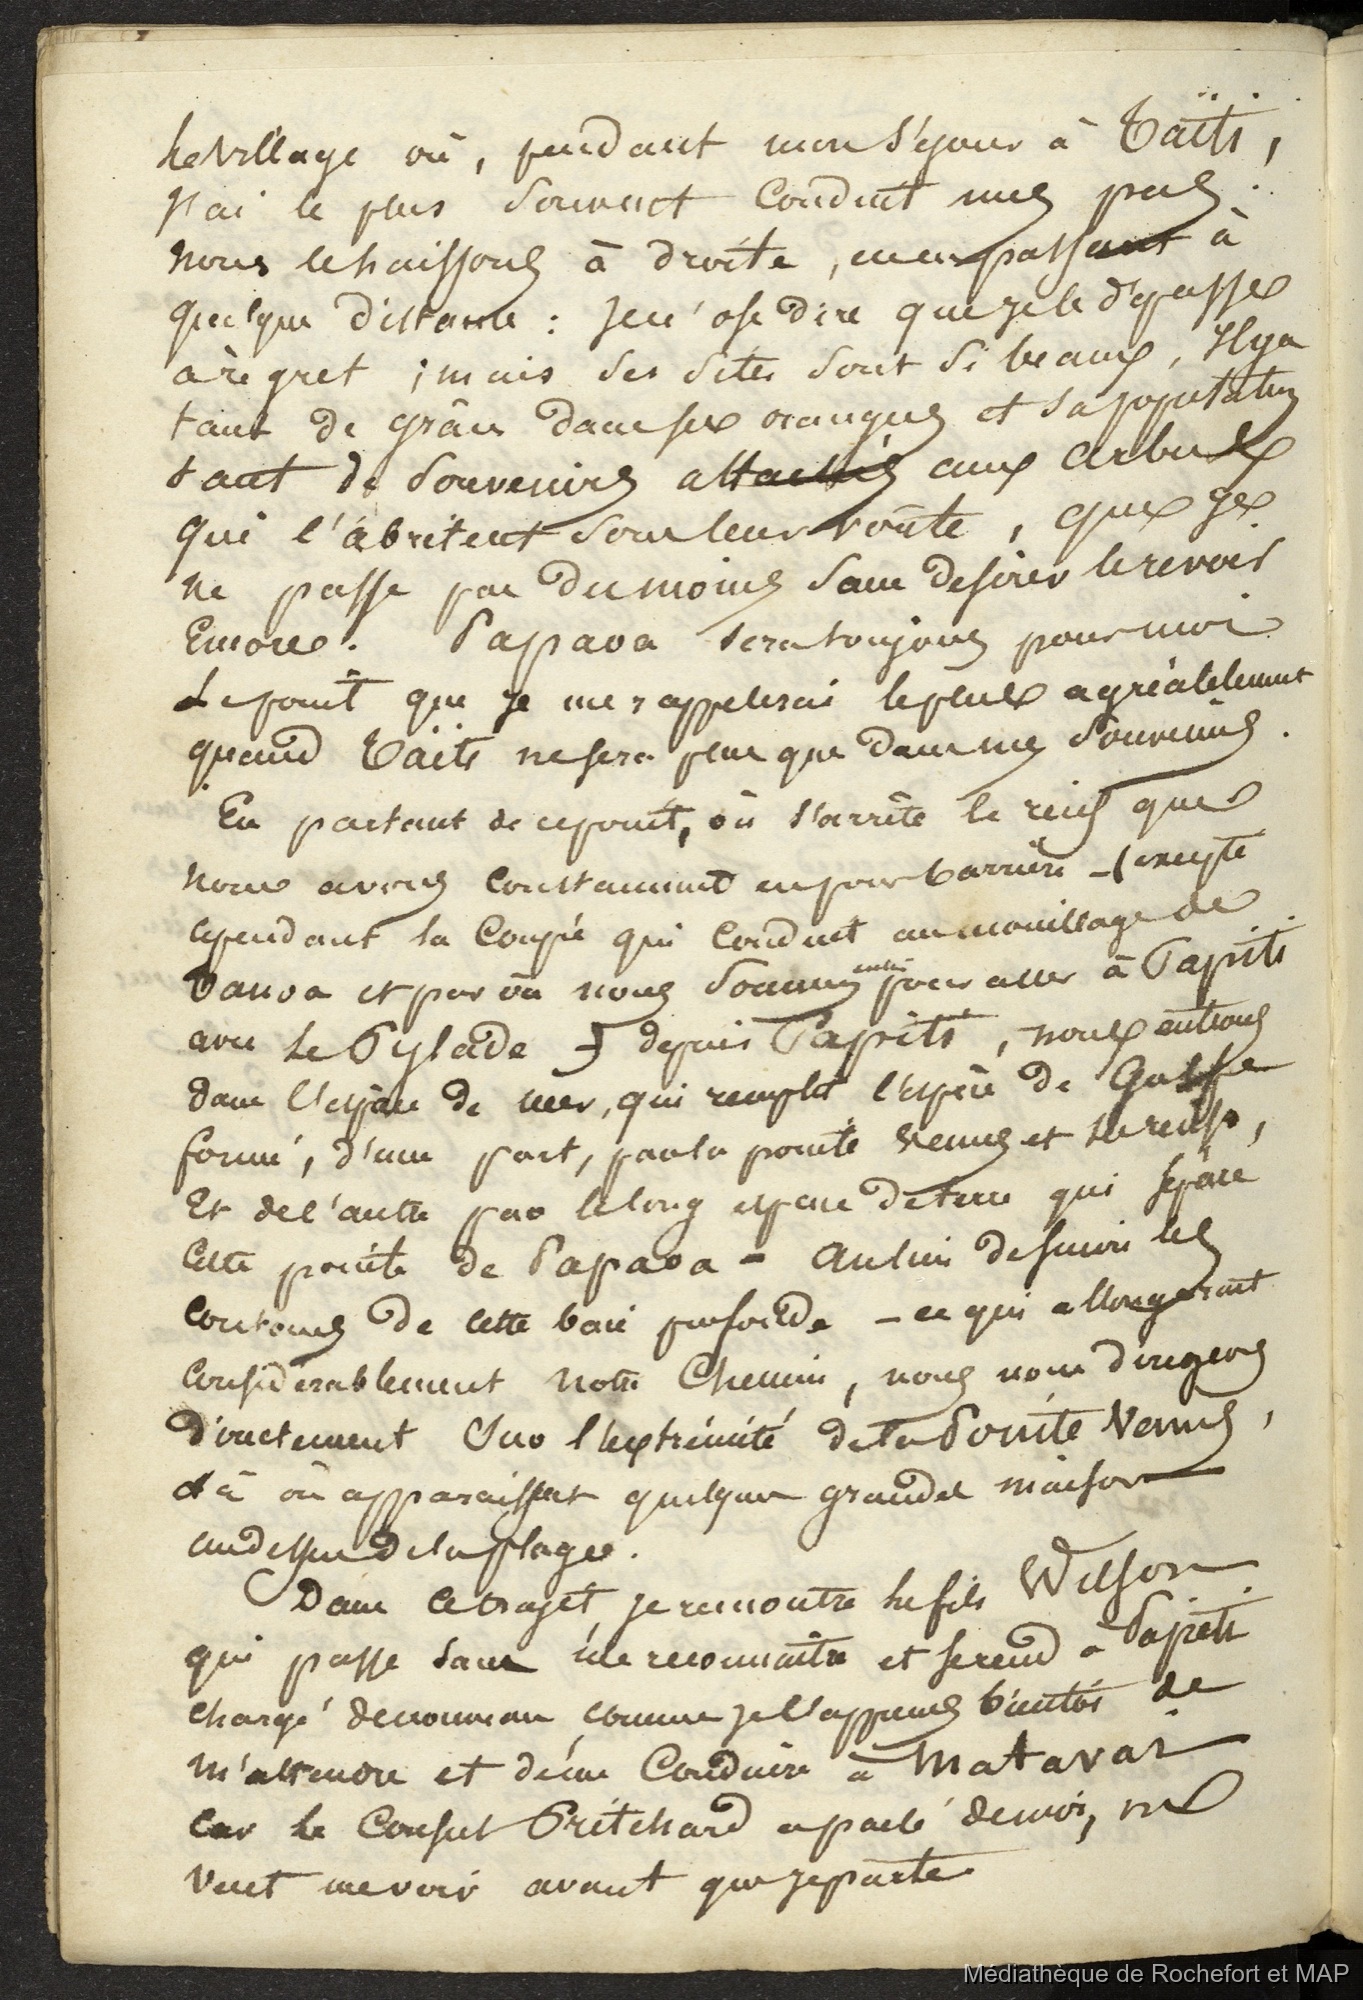 Le village où, pendant mon séjour à Taïti,
j'ai le plus souvent conduit mes pas.
nous le laissons à droite, en passant à
quelque distance : je n'ose dire que je le dépasse
à regret ; mais ses sites sont si beaux, il y a
tant de grâce dans ses orangers et sa population
tant de souvenirs attachés aux arbres
qui l'abritent sous leur voûte, que je
ne passe pas du moins sans désirer le revoir
Encore. Papaoa sera toujours pour moi
Le point que je me rappelerai le plus agréablement
quand Taïti ne sera plus que dans mes souvenirs.
En partant de ce point, où s'arrête le récif que
nous avons constamment eu pour barrière - (excepté
cependant la coupée qui conduit au mouillage de
Tanoa et par où nous sommes entrés pour aller à Papeïti
avec Le Pylade -) depuis Papeïti, nous entrons
dans l'espace de mer, qui remplit l'espèce de Golfe
formé, d'une part, par la pointe Venus et les récifs,
Et de l'autre par le long espace de terre qui sépare
cette pointe de Papaoa - Au lieu de suivre les
contours de cette baie profonde - ce qui allongerait
considérablement notre chemin, nous nous dirigeons
directement sur l'extrémité de la Pointe Venus,
Là où apparaissent quelques grandes maisons
au dessus de la plage.
Dans ce trajet, je rencontre le fils Wilson
qui passe sans me reconnaitre et se rend à Papeïti
chargé de nouveau comme je l'apprends bientôt de
m'attendre et de me conduire à Matavaï
car le Consul Pritchard a parlé de moi,
veut me voir avant que je parte
Médiathèque de Rochefort et MAP